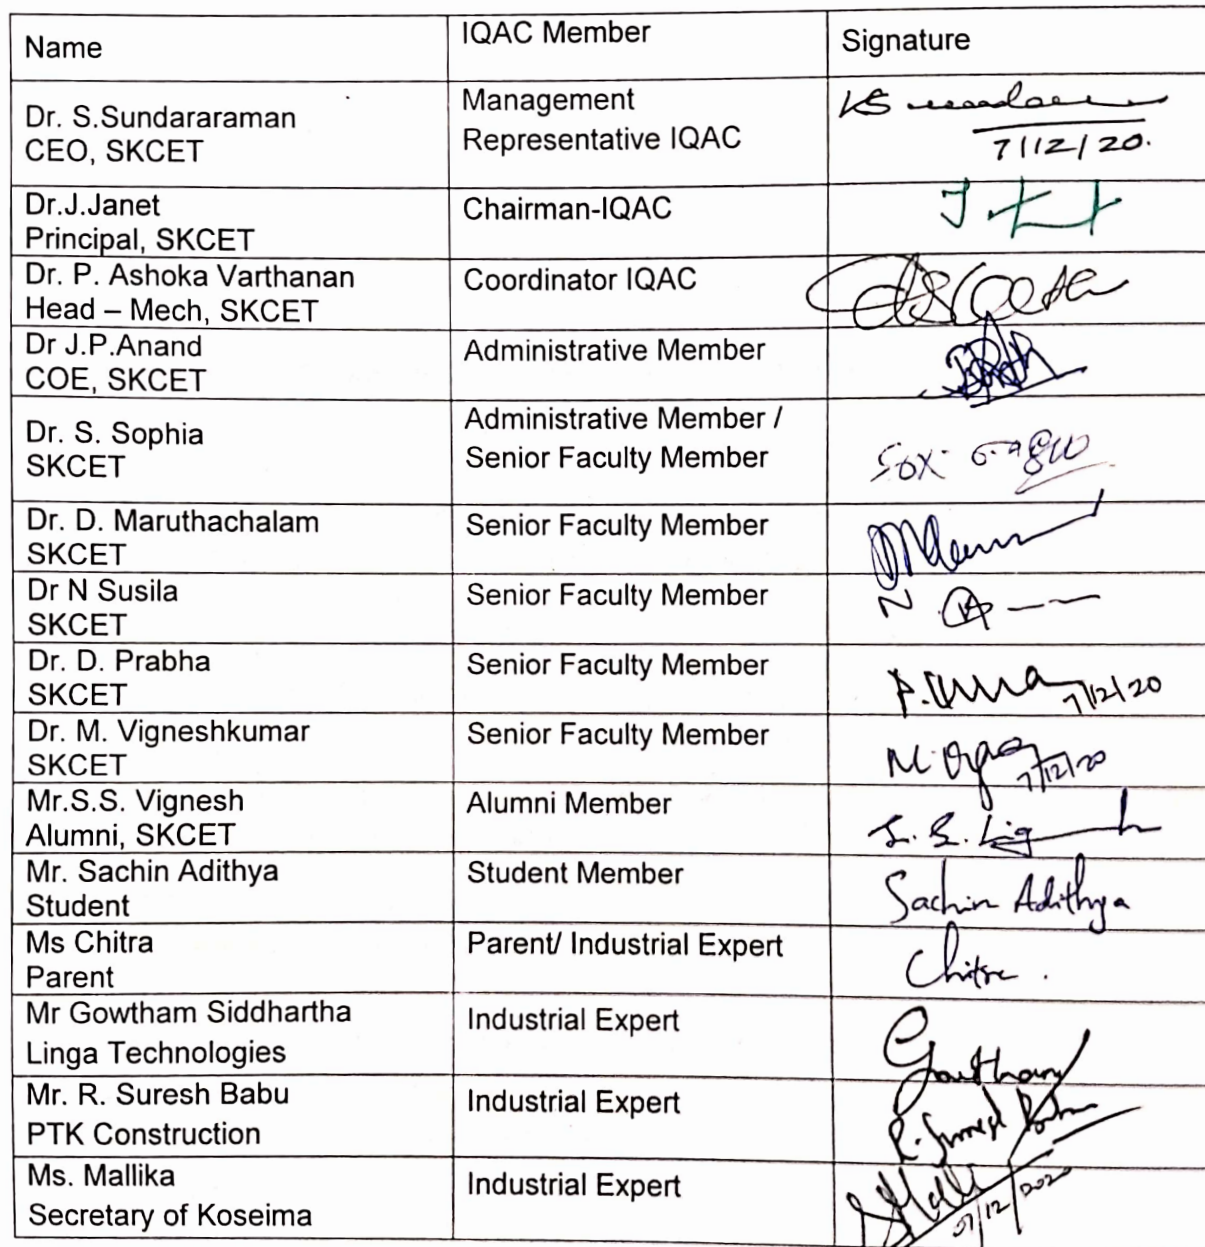 Name
IQAC Member
Signature
Dr. S.Sundararaman
CEO, SKCET
Management
Representative IQAC
7/12/20.
Dr.J.Janet
Principal, SKCET
Chairman-IQAC
Dr. P. Ashoka Varthanan
Head – Mech, SKCET
Coordinator IQAC
Dr J.P.Anand
COE, SKCET
Administrative Member
Dr. S. Sophia
SKCET
Administrative Member /
Senior Faculty Member
Dr. D. Maruthachalam
SKCET
Senior Faculty Member
Dr N Susila
SKCET
Senior Faculty Member
N
Dr. D. Prabha
SKCET
Senior Faculty Member
7/12/20
Dr. M. Vigneshkumar
SKCET
Senior Faculty Member
7/12/20
Mr.S.S. Vignesh
Alumni, SKCET
Alumni Member
Mr. Sachin Adithya
Student
Student Member
Sachin Adithya
Ms Chitra
Parent
Parent/ Industrial Expert
Chitra.
Mr Gowtham Siddhartha
Linga Technologies
Industrial Expert
Gowtham
Mr. R. Suresh Babu
PTK Construction
Industrial Expert
Ms. Mallika
Secretary of Koseima
Industrial Expert
07/12/2020